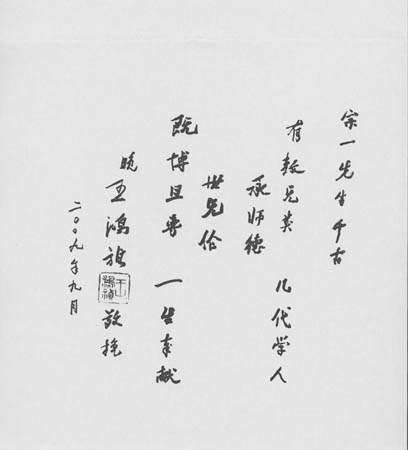 宗一先生千古
有教无类 几代学人
承师德
世无伦
既博且专 一生奉献
晚 王鸿祯 敬挽
二〇〇九年九月